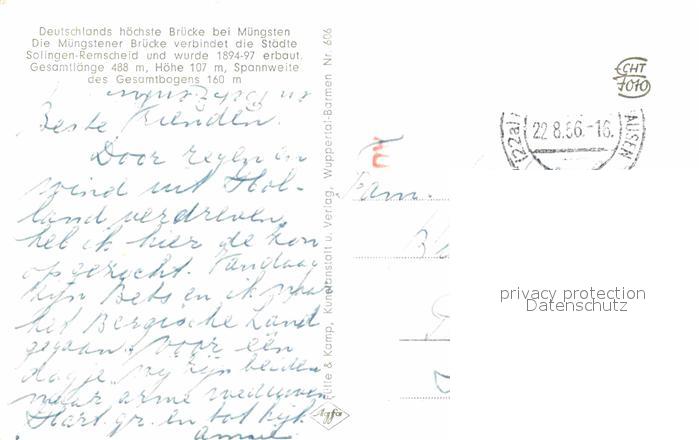 Deutschlands höchste Brücke bei Müngsten
Die Müngstener Brücke verbindet die Städte
Solingen-Remscheid und wurde 1894-97 erbaut.
Gesamtlänge 488 m, Höhe 107 m, Spannweite
des Gesamtbogens 160 m
Beste Vrienden.
Door regen en
wind uit Hol-
land verdreven,
heb ik hier de zon
opgezocht. Vandaag
zijn Bets en ik naar
het Bergische Land
gegaan. Voor één
dagje. Wij zijn beiden
maar arme weduwen
Hart. gr. en tot kijk.
Fülle & Kamp, Kunstanstalt u. Verlag, Wuppertal-Barmen Nr. 606
Agfa
ECHT
FOTO
(22a)
22.8.56.-16
AUSEN
Fam.
privacy protection
Datenschutz